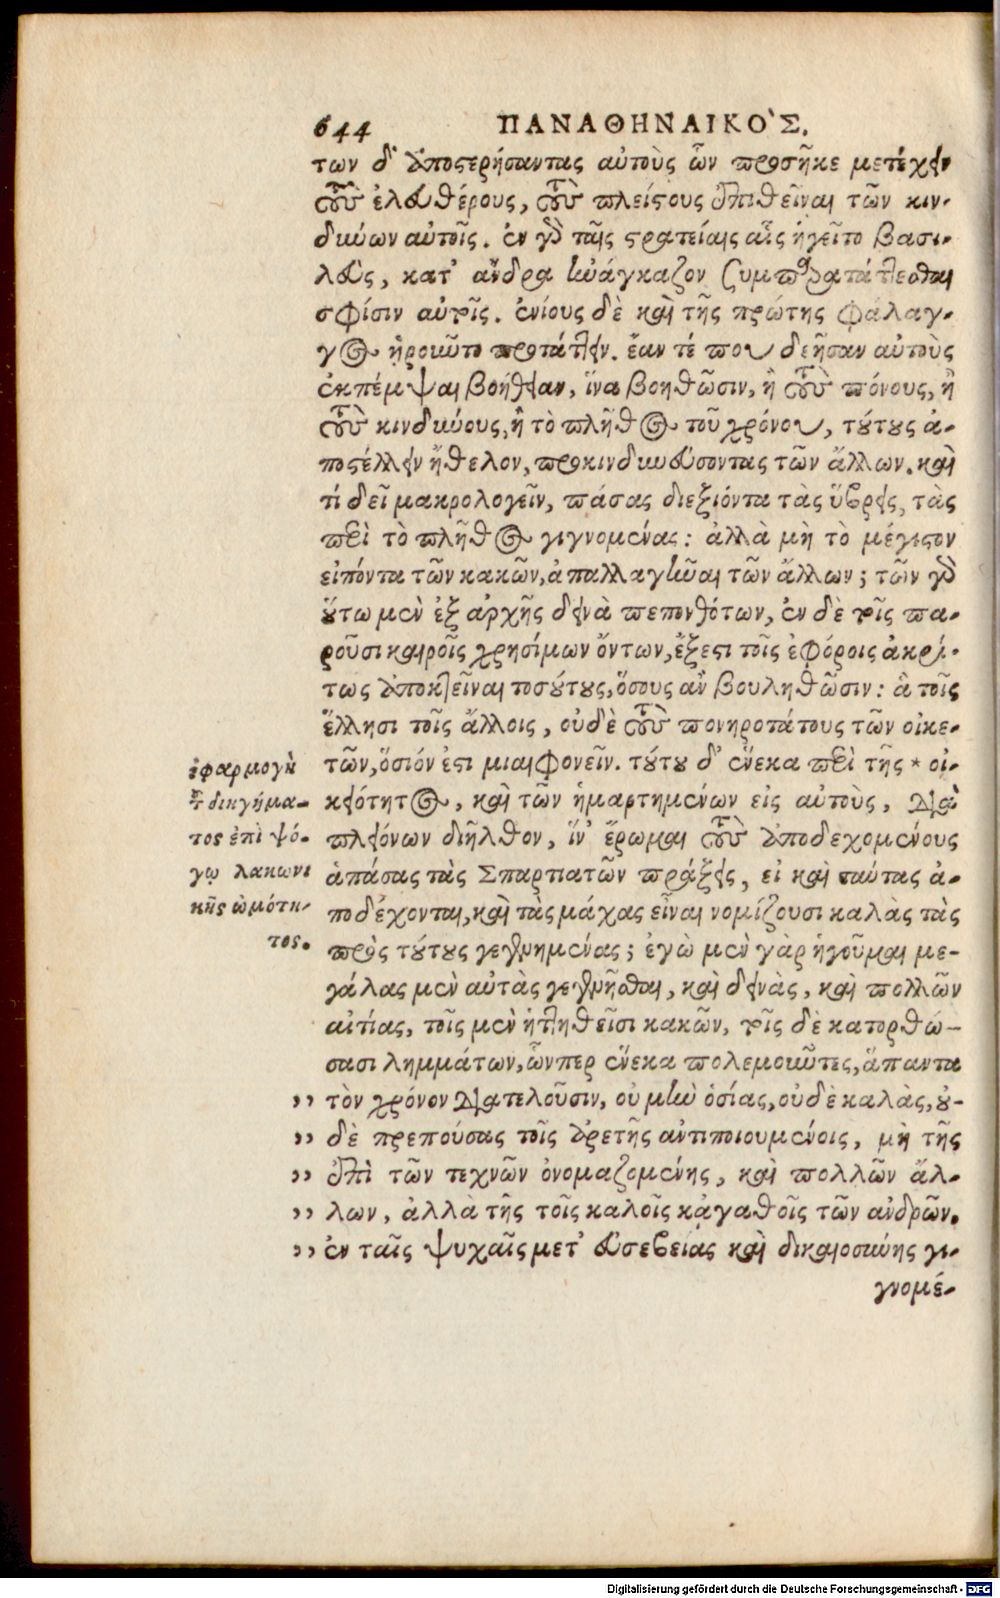 644 ΠΑΝΑΘΗΝΑΙΚΟ`Σ.
των δ' ἀποστερήσαντας αὐτοὺς ὧν προσῆκε μετέχειν
τοὺς ἐλευθέρους, τοὺς πλείστους ἐπιθεῖναι τῶν κιν-
δύνων αὐτοῖς. ἐν γὰρ ταῖς στρατείαις αἷς ἡγεῖτο βασι-
λεὺς, κατ' ἄνδρα ἠνάγκαζον συμπαρατάττεσθαι
σφίσιν αὐτοῖς. ἐνίους δὲ καὶ τῆς πρώτης φάλαγ-
γος ἠροιῶτο προτάττειν. ἐαν τέ που δεῆσαν αὐτοὺς
ἐκπέμψαι βοήθειαν, ἵνα βοηθῶσιν, ἢ τοὺς πόνους, ἢ
τοὺς κινδύνους, ἢ τὸ πλῆθος τοῦ χρόνου, τούτους ἀ-
ποστέλλειν ἤθελον, προκινδυνεύσοντας τῶν ἄλλων. καὶ
τί δεῖ μακρολογεῖν, πάσας διεξιόντα τὰς ὕβρεις, τὰς
περὶ τὸ πλῆθος γιγνομένας: ἀλλὰ μὴ τὸ μέγιστον
εἰπόντα τῶν κακῶν, ἀπαλλαγῆναι τῶν ἄλλων; τῶν γὰρ
οὕτω μὲν ἐξ ἀρχῆς δεινὰ πεπονθότων, ἐν δὲ τοῖς πα-
ροῦσι καιροῖς χρησίμων ὄντων, ἔξεστι τοῖς ἐφόροις ἀκρί-
τως ἀποκτεῖναι τοσούτους, ὅσους ἂν βουληθῶσιν: ἃ τοῖς
ἕλλησι τοῖς ἄλλοις, οὐδὲ τοὺς πονηροτάτους τῶν οἰκε-
τῶν, ὅσιόν ἐστι μιαιφονεῖν. τούτου δ' ἕνεκα περὶ τῆς * οἰ-
κειότητος, καὶ τῶν ἡμαρτημένων εἰς αὐτοὺς, διὰ
πλειόνων διῆλθον, ἵν' ἔρωμαι τοὺς ἀποδεχομένους
ἁπάσας τὰς Σπαρτιατῶν πράξεις, εἰ καὶ ταύτας ἀ-
ποδέχονται, καὶ τὰς μάχας εἶναι νομίζουσι καλὰς τὰς
πρὸς τούτους γεγενημένας; ἐγὼ μὲν γὰρ ἡγοῦμαι με-
γάλας μὲν αὐτὰς γεγενῆσθαι, καὶ δεινὰς, καὶ πολλῶν
αἰτίας, τοῖς μὲν ἡττηθεῖσι κακῶν, τοῖς δὲ κατορθώ-
σασι λημμάτων, ὧνπερ ἕνεκα πολεμοῦντες, ἅπαντα
,, τὸν χρόνον διατελοῦσιν, οὐ μὴν ὁσίας, οὐδὲ καλὰς, οὐ-
,, δὲ πρεπούσας τοῖς ἀρετῆς ἀντιποιουμένοις, μὴ τῆς
,, ἐπὶ τῶν τεχνῶν ὀνομαζομένης, καὶ πολλῶν ἄλ-
,, λων, ἀλλὰ τῆς τοῖς καλοῖς κἀγαθοῖς τῶν ἀνδρῶν.
,, ἐν ταῖς ψυχαῖς μετ' εὐσεβείας καὶ δικαιοσύνης γι-
γνομέ-
ἐφαρμογὴ
τοῦ διηγήμα-
τος ἐπὶ ψό-
γῳ λακωνι
κῆς ὠμότη-
τος.
Digitalisierung gefördert durch die Deutsche Forschungsgemeinschaft - DFG